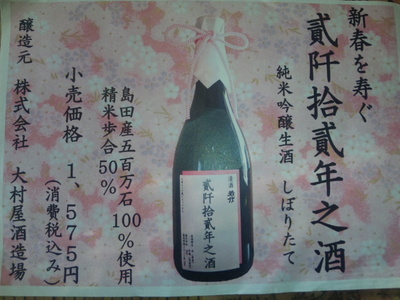 新春を寿ぐ
貳阡拾貳年之酒
純米吟醸生酒 しぼりたて
清酒 若竹
貳阡拾貳年之酒
島田産五百万石100%使用
精米歩合50%
小売価格 1、575円
(消費税込み)
醸造元 株式会社 大村屋酒造場